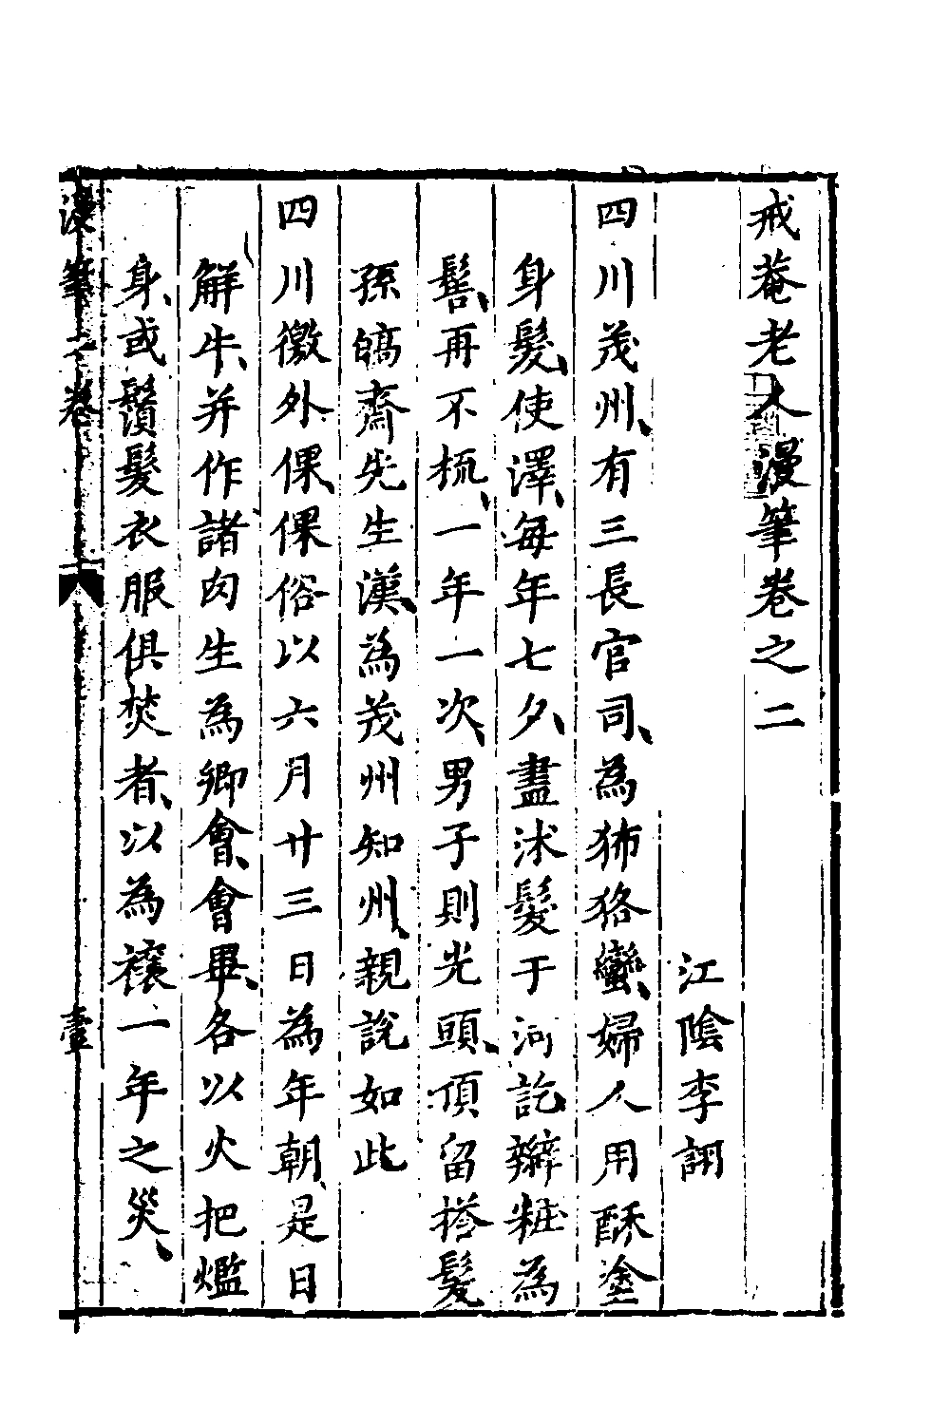 戒菴老人漫筆卷之二
江陰李詡
四川茂州、有三長官司、為狒狢蠻、婦人用酥塗
身髮、使澤、每年七夕、盡沐髮于河訖辮粧為
髻、再不梳、一年一次、男子則光頭、頂留撘髮
孫皜齋先生漢、為茂州知州、親說如此
四川徼外倮、倮俗以六月廿三日為年朝、是日
解牛、并作諸肉生為卿會、會畢、各以火把爁
身、或鬚髮衣服俱焚者、以為禳一年之災、
漫筆之卷
壹